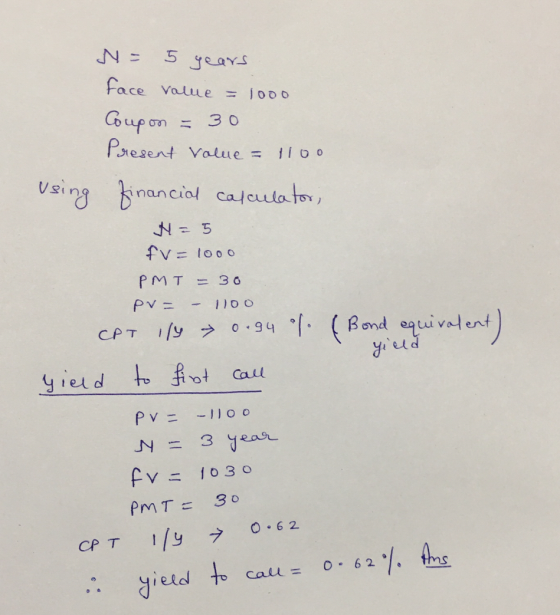 N = 5 years
Face value = 1000
Coupon = 30
Present Value = 1100
Using financial calculator,
N = 5
fV = 1000
PMT = 30
PV = - 1100
CPT I/Y → 0.94 %. (Bond equivalent) yield
Yield to first call
PV = -1100
N = 3 year
fV = 1030
PMT = 30
CPT I/Y → 0.62
∴ yield to call = 0.62%. Ans